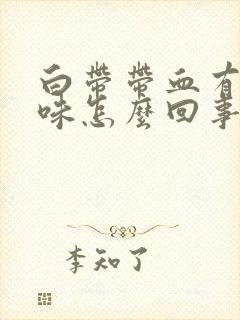 白帶帶血有
味怎麼回事
李知了